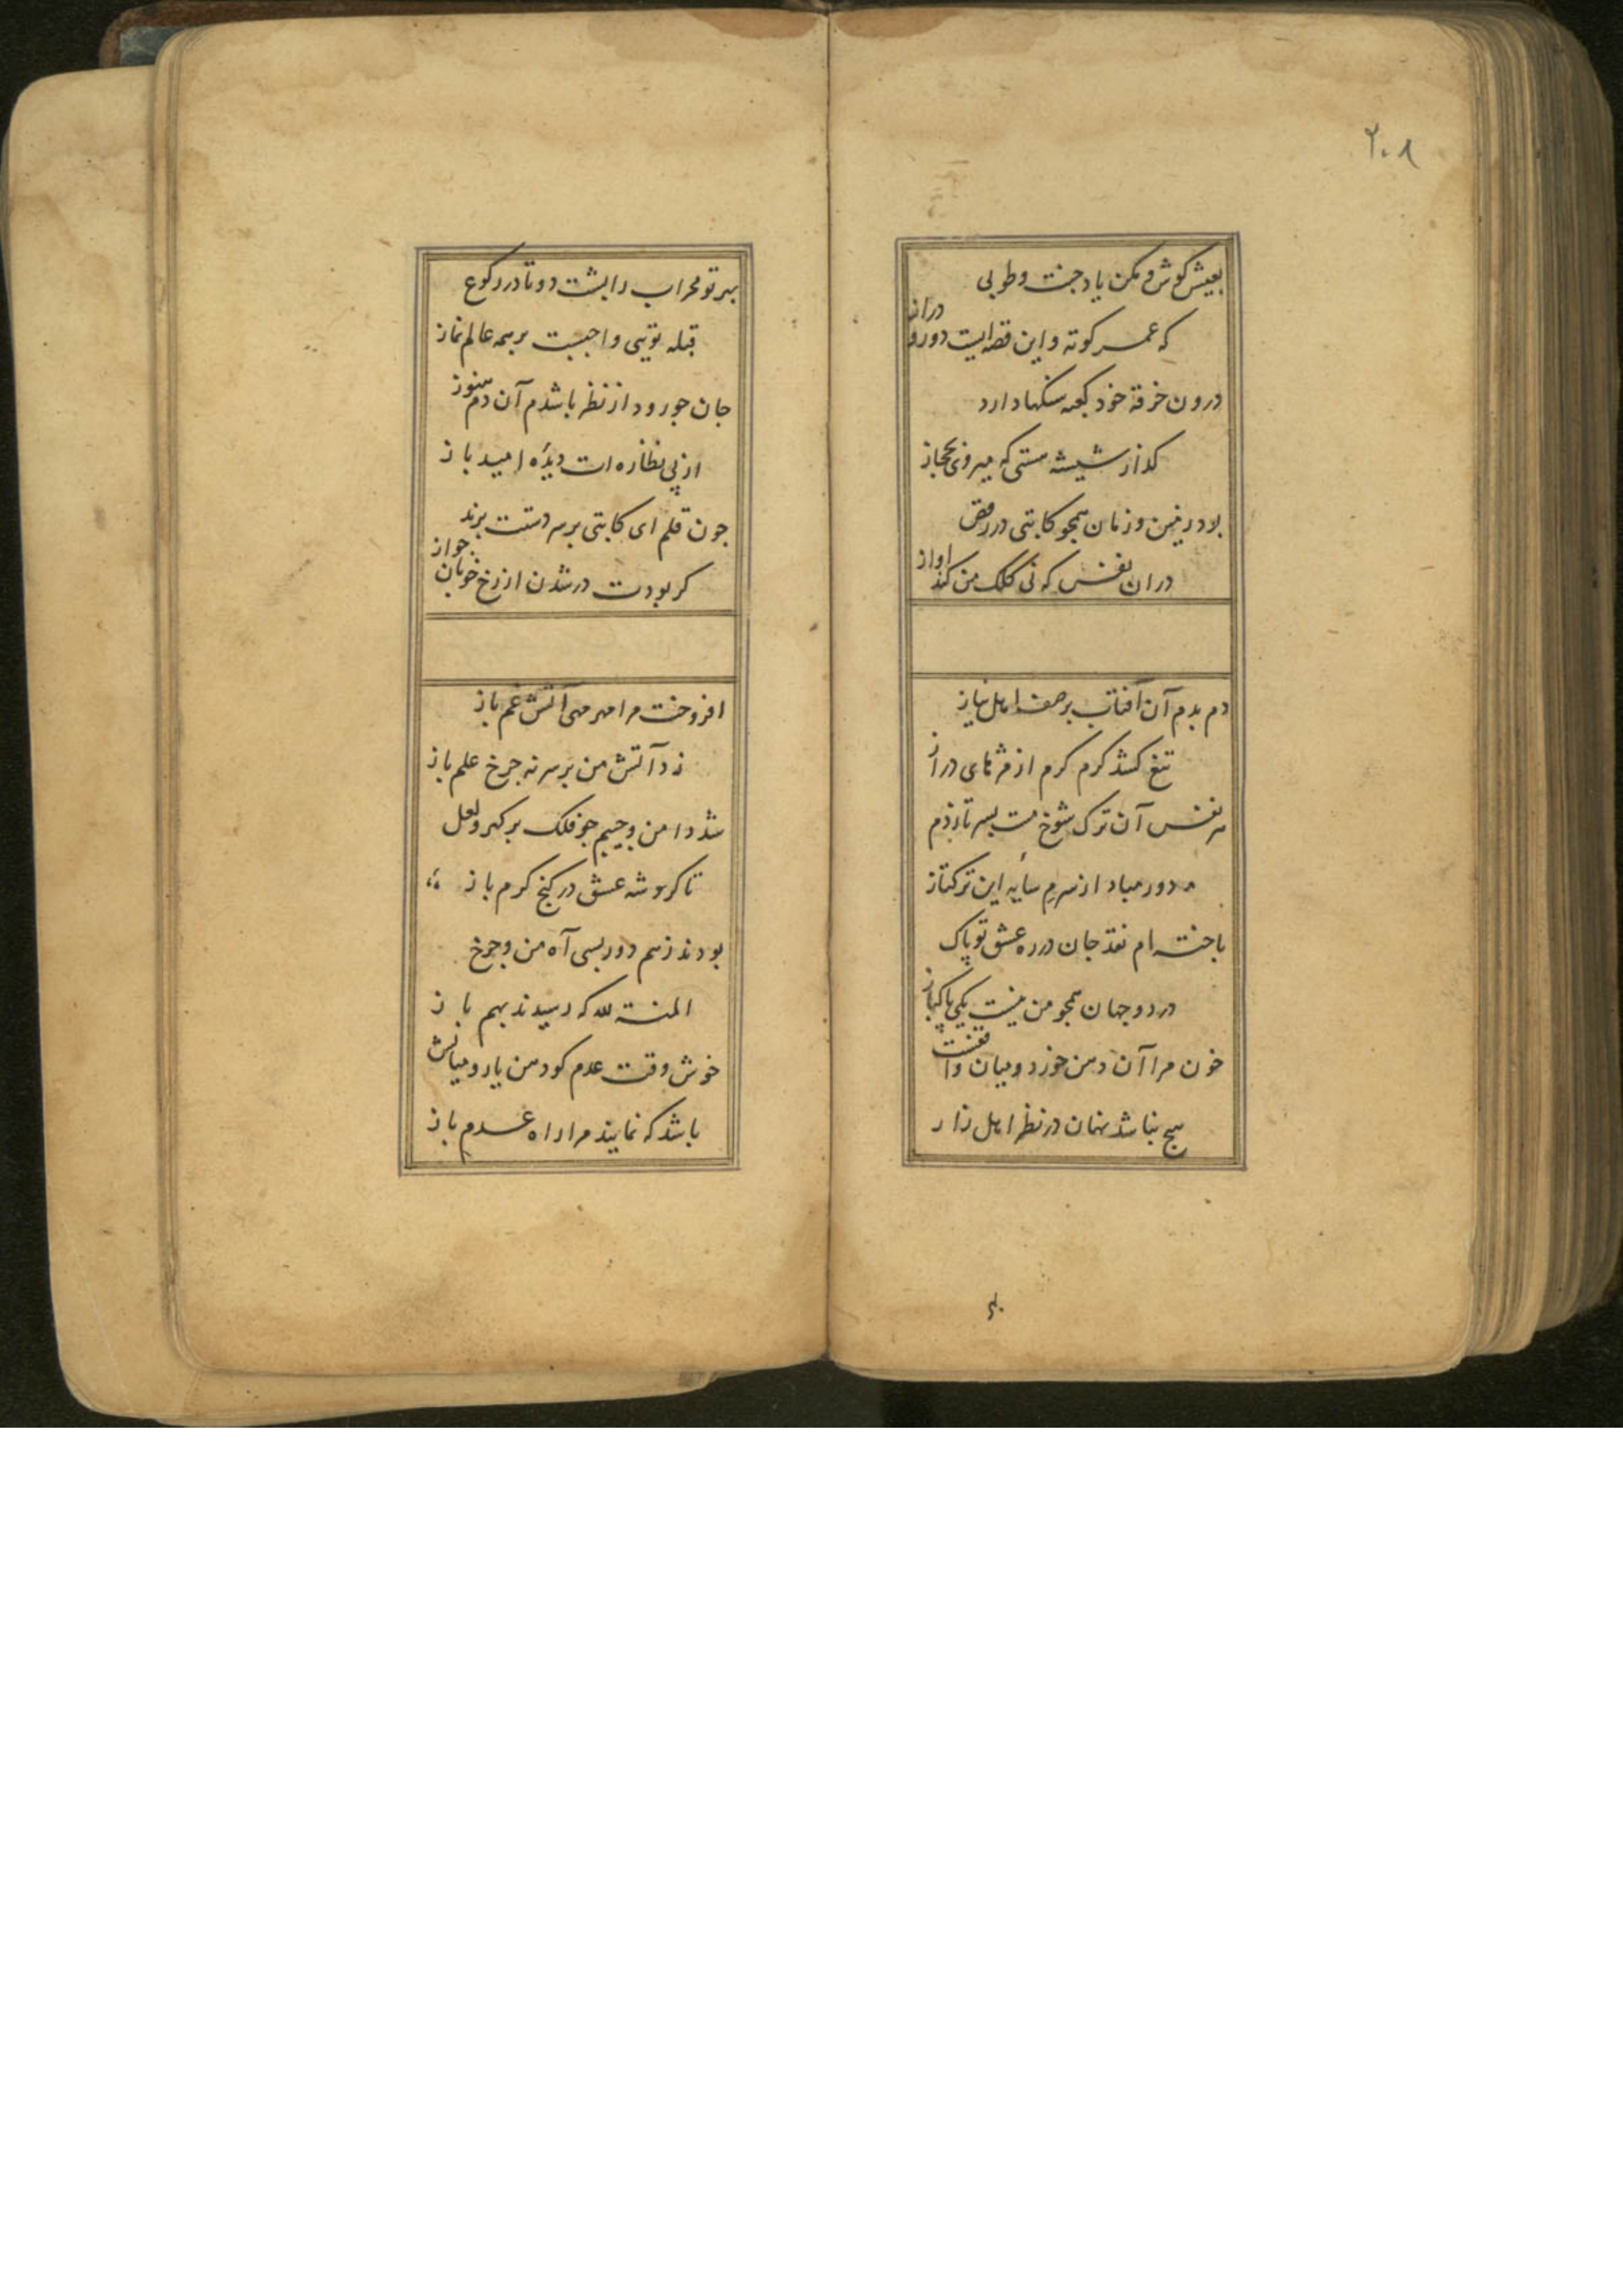 ۲۰۸
بعیش کوش و مکن یاد جنت و طوبی
که عمر کوته و این قصه ایست دور و دراز
درون خرقه خود کعبه سنکها دارد
کذار شیشه مستی که میروی بحجاز
بلا در زمین و زمان همچو کاتبی در رقص
دران نفس که نی کلک من کند اواز
دم بدم آن آفتاب بر صف اهل نیاز
تیغ کشد کرم کرم از مژهای دراز
هر نفس آن ترک شوخ مست بسر تازدم
دور مباد از سرم سایه این ترکتاز
باخته ام نقد جان در ره عشق تو پاک
در دو جهان همچو من نیست یکی پاکباز
خون مرا آن دهن خورد و میان واقفست
هیچ نباشد نهان در نظر اهل راز
بهر تو محراب را پشت دوتا در رکوع
قبله تویی واجبست بر همه عالم نماز
جان جو رود از نظر باشدم آن دم هنوز
از پی نظاره ات دیده امید باز
جون قلم ای کاتبی بر سر دستت برند
کر بودت در شدن از رخ خوبان جواز
افروخت مرا مهر مهی آتش غم باز
زد آتش من بر سر نه جرخ علم باز
شد دامن و جیبم جو فلک بر کهر و لعل
تا کرد شه عشق در کنج کرم باز
بودند ز هم دور بسی آه من و جرخ
المنة لله که رسیدند بهم باز
خوش وقت عدم کو دهن یار و میانش
باشد که نمایند مرا راه عدم باز